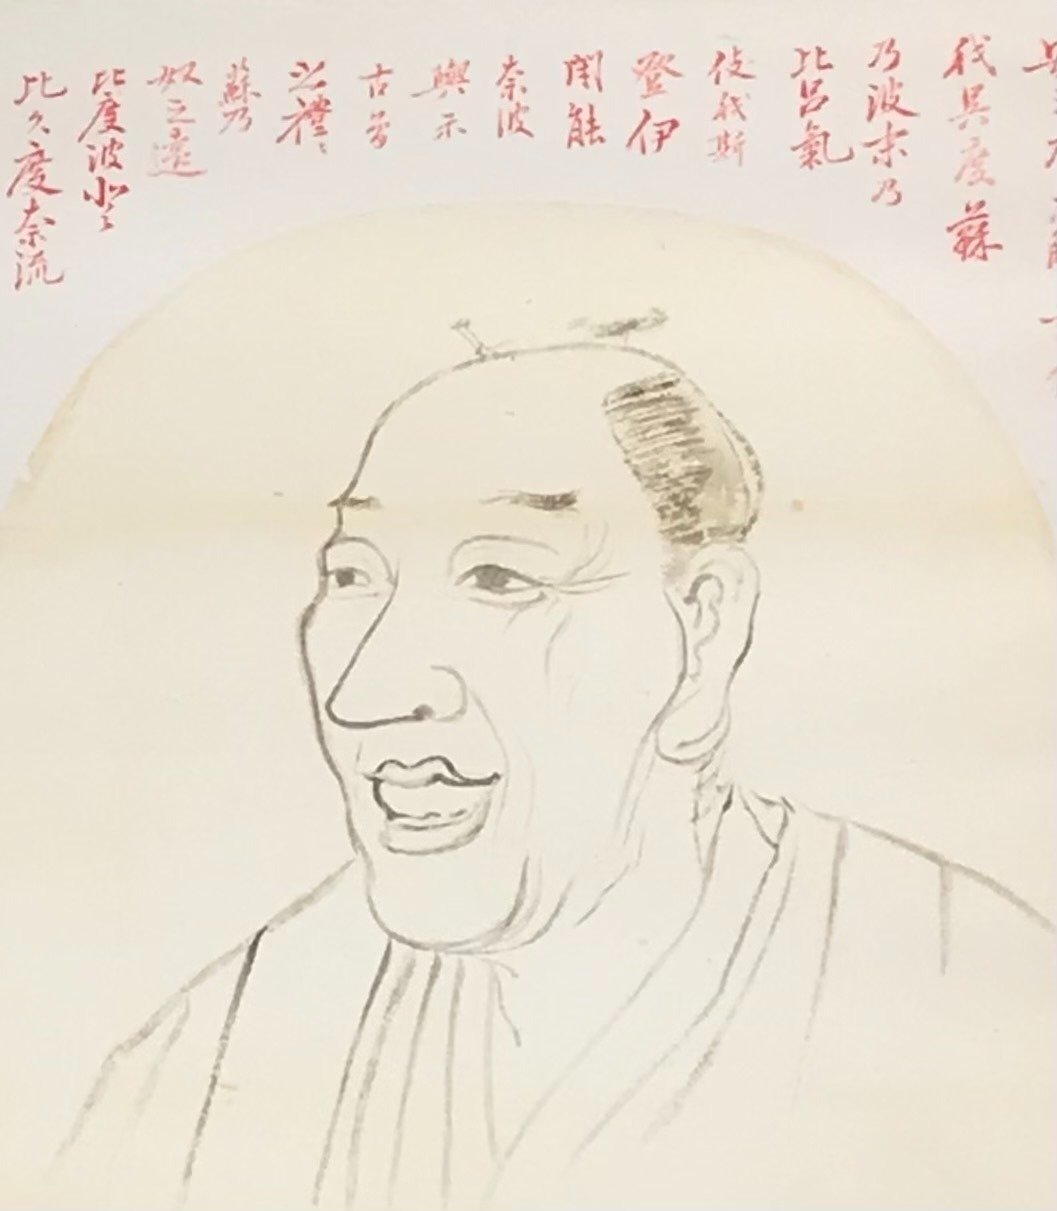 我具度蘇
乃波末乃
比呂氣
伎我斯
登伊
聞能
奈波
與示
古曽
之禮〻
蘇乃
奴之遠
比度波
比久度奈流